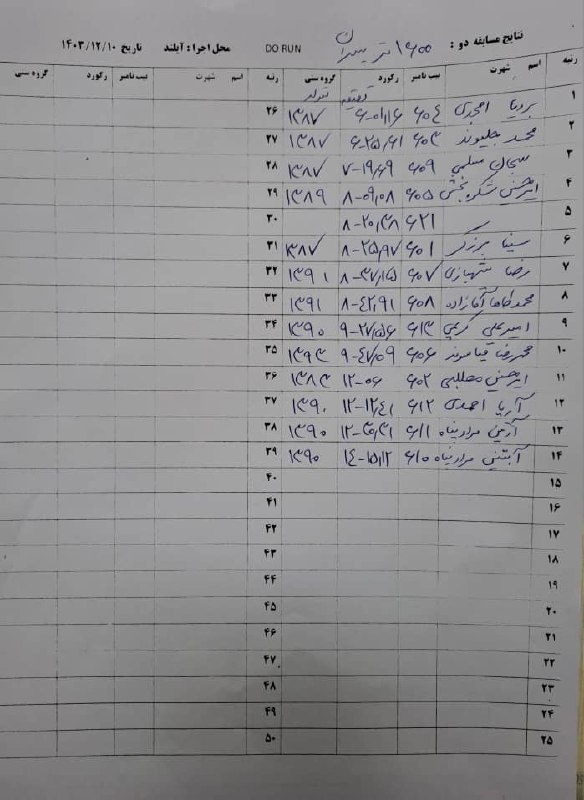 نتایج مسابقه دو : ۱۶۰۰ متر پسران DO RUN محل اجرا : آیلند تاریخ ۱۴۰۳/۱۲/۱۰
رتبه اسم شهرت بیب نامبر رکورد گروه سنی رتبه اسم شهرت بیب نامبر رکورد گروه سنی
دقیقه تولد
۱ بردیا امجدی ۶۰۴ ۶-۰۱,۱۶ ۱۳۸۷ ۲۶
۲ محمد جلیوند ۶۰۳ ۶-۲۵,۶۱ ۱۳۸۷ ۲۷
۳ سبحان سلمی ۶۰۹ ۷-۱۹,۶۹ ۱۳۸۷ ۲۸
۴ امیرحسین شکربخش ۶۰۵ ۸-۰۹,۰۸ ۱۳۸۹ ۲۹
۵ ۶۲۱ ۸-۲۰,۳۸ ۳۰
۶ سینا برزگر ۶۰۱ ۸-۲۵,۹۷ ۱۳۸۷ ۳۱
۷ رضا شهبازی ۶۰۷ ۸-۳۷,۱۵ ۱۳۹۱ ۳۲
۸ محمدطاها آقازاده ۶۰۸ ۸-۴۲,۹۱ ۱۳۹۱ ۳۳
۹ امیرعلی کریمی ۶۱۳ ۹-۲۷,۵۶ ۱۳۹۰ ۳۴
۱۰ محمدرضا ۶۰۶ ۹-۴۷,۰۹ ۱۳۹۳ ۳۵
۱۱ امیرحسین مطلبی ۶۰۲ ۱۲-۰۶ ۱۳۸۳ ۳۶
۱۲ آریا احمدی ۶۱۲ ۱۲-۱۲,۴۱ ۱۳۹۰ ۳۷
۱۳ مرادپناه ۶۱۱ ۱۲-۳۵,۳۱ ۱۳۹۰ ۳۸
۱۴ آبتین مرادپناه ۶۱۰ ۱۴-۱۵,۱۲ ۱۳۹۰ ۳۹
۱۵ ۴۰
۱۶ ۴۱
۱۷ ۴۲
۱۸ ۴۳
۱۹ ۴۴
۲۰ ۴۵
۲۱ ۴۶
۲۲ ۴۷
۲۳ ۴۸
۲۴ ۴۹
۲۵ ۵۰